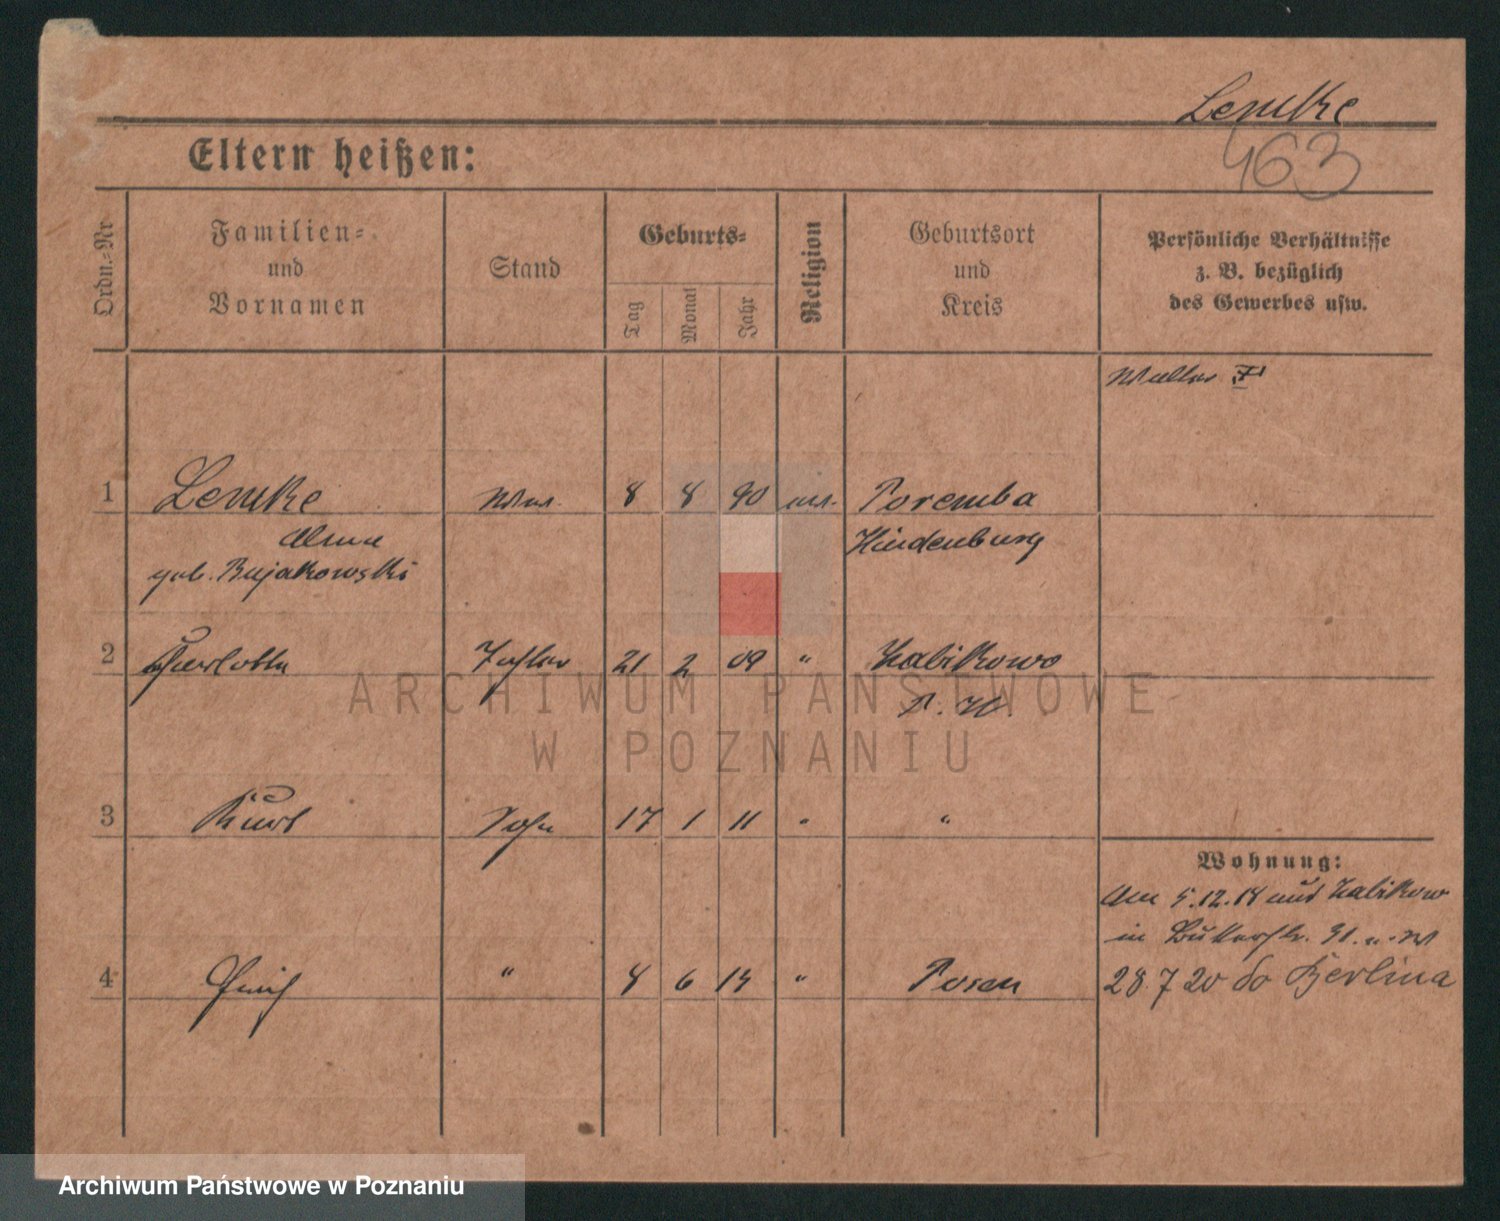 Lemke
463
Eltern heißen:
Ordn.-Nr
Familien-
und
Vornamen
Stand
Geburts-
Tag
Monat
Jahr
Religion
Geburtsort
und
Kreis
Persönliche Verhältnisse
z. B. bezüglich
des Gewerbes usw.
1 Lemke 8 8 90 Poremba
Alma Hindenburg
geb. Bujakowski
2 Tochter 21 2 09 " Zabikowo
P. W.
3 Kurt Sohn 17 1 11 " "
Wohnung:
Am 5.12.18 aus Zabikow
in
4 " 8 6 " Posen
28. 7 20 do Berlina
ARCHIWUM PAŃSTWOWE
W POZNANIU
Archiwum Państwowe w Poznaniu